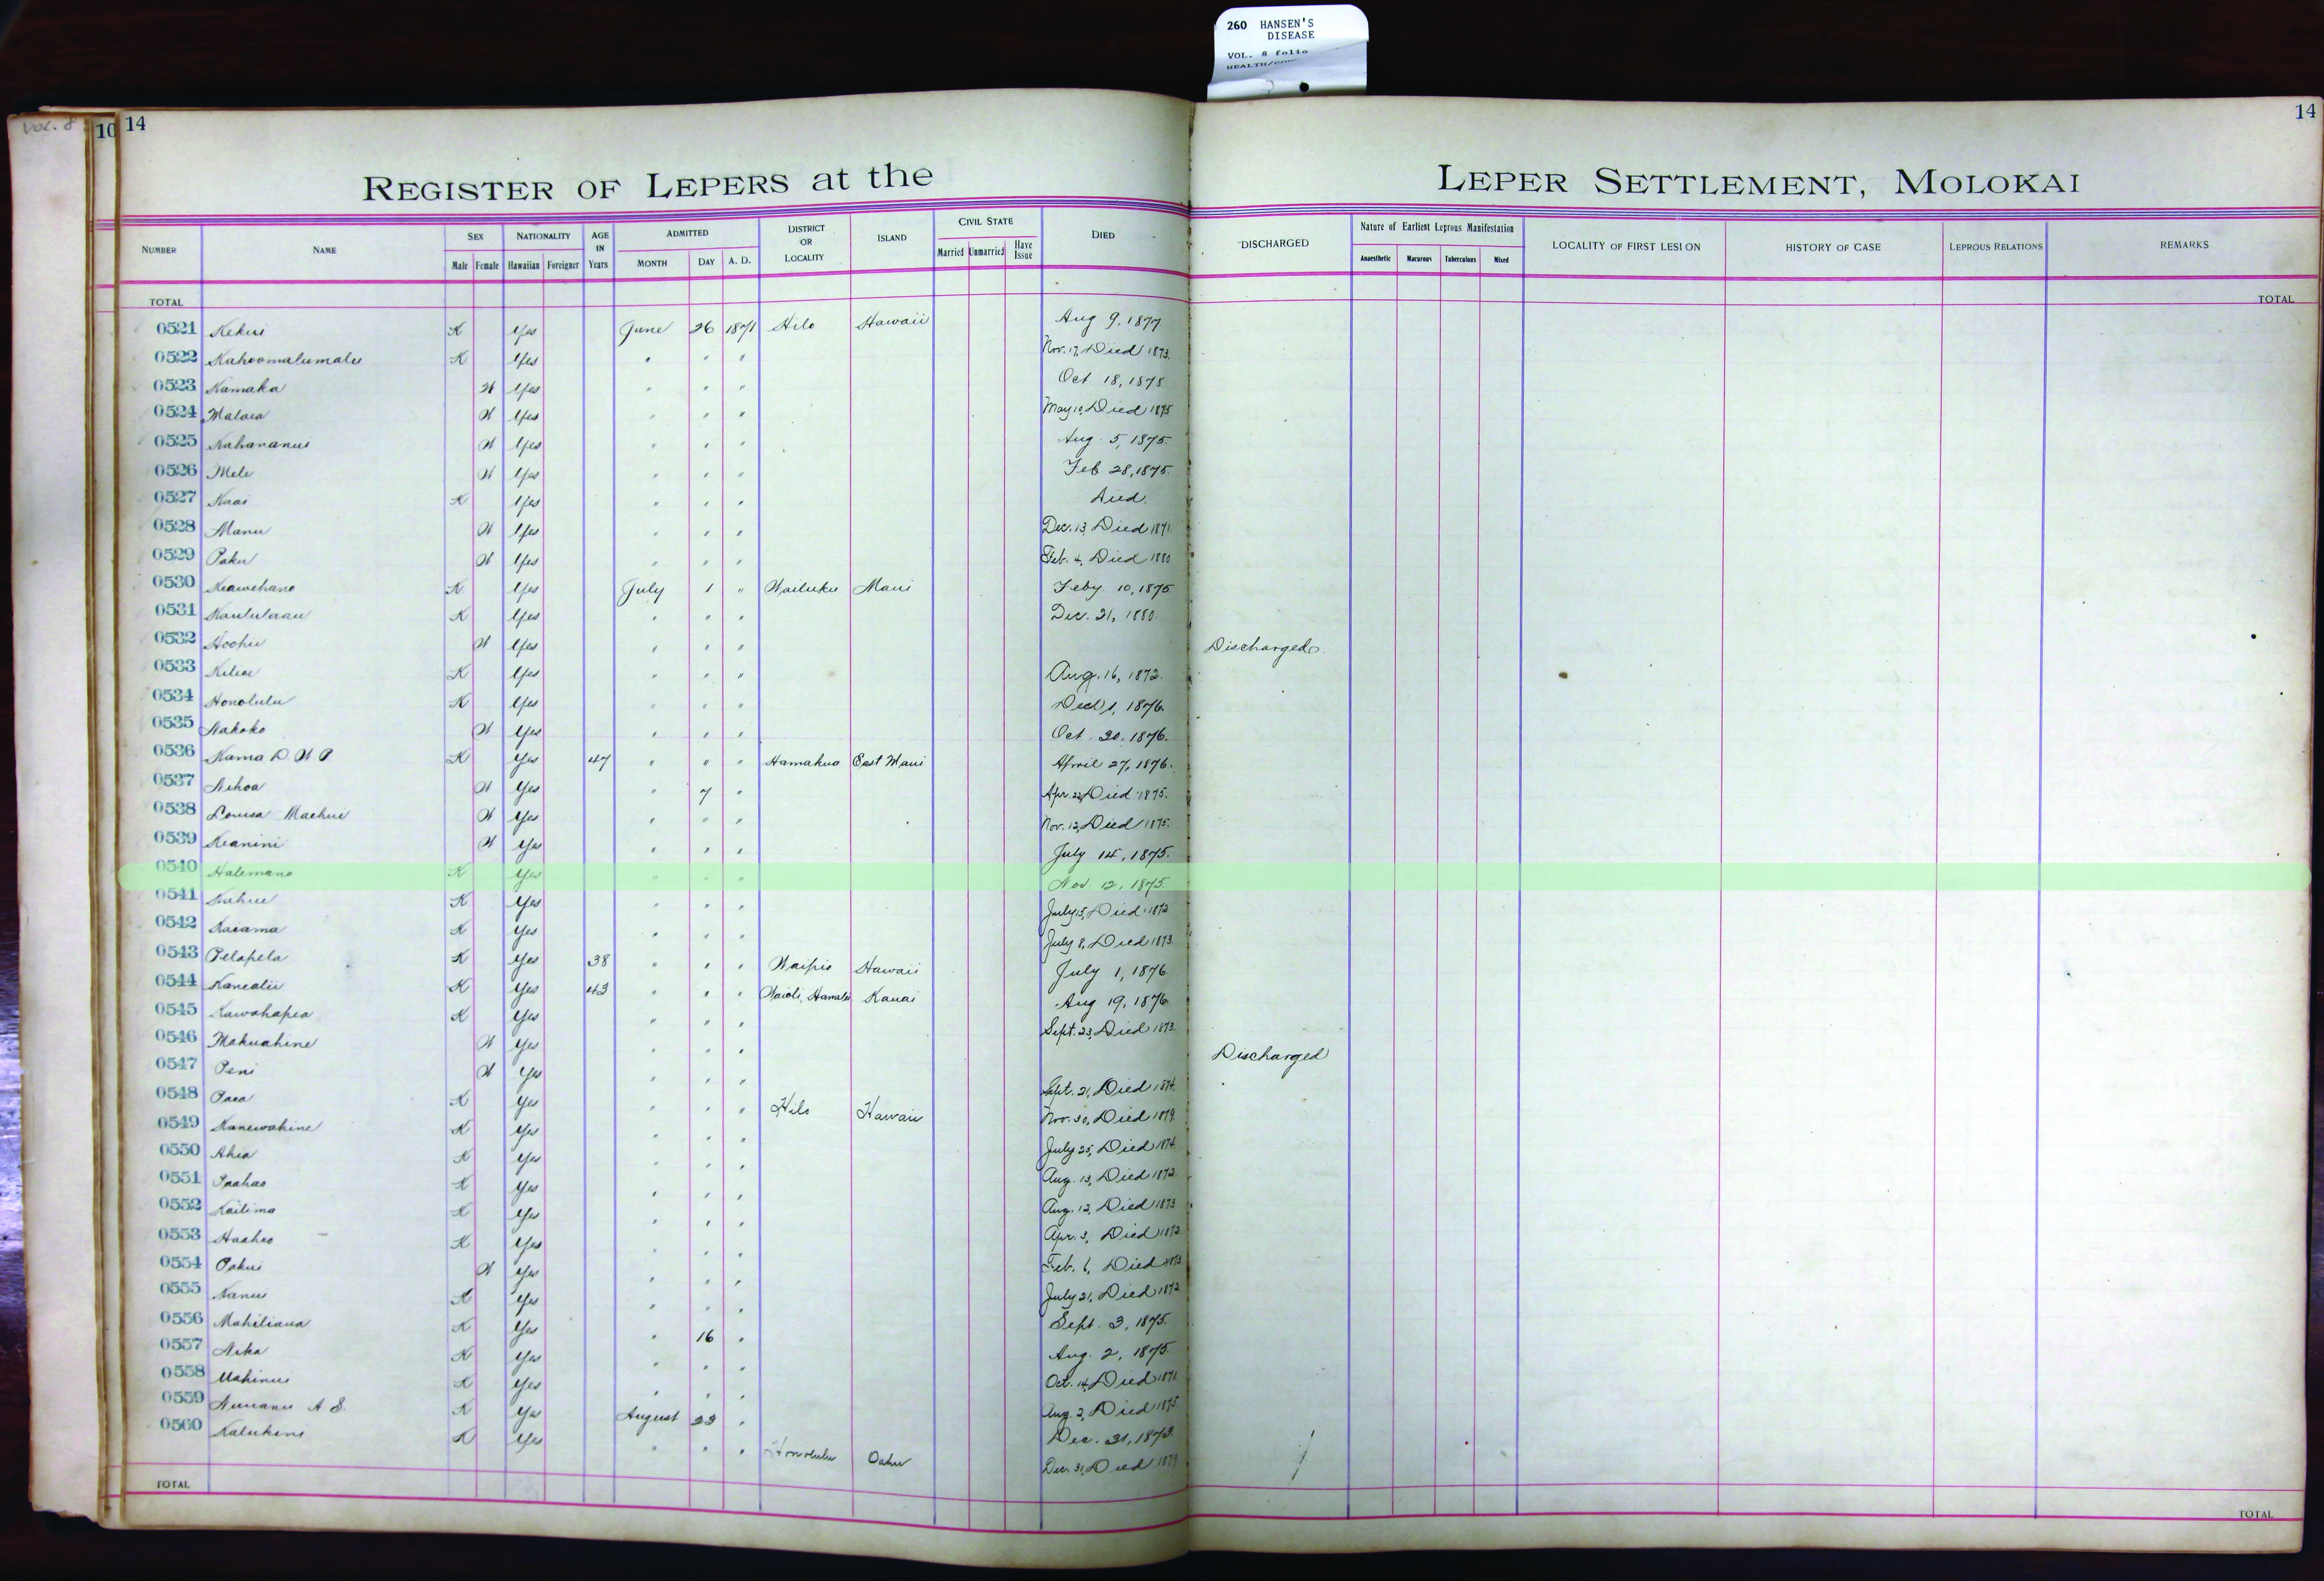 260 HANSEN'S
DISEASE
VOL. 8 folio
VOL. 8
10 14
14
REGISTER OF LEPERS at the LEPER SETTLEMENT, MOLOKAI
NUMBER NAME SEX Male Female NATIONALITY Hawaiian Foreigner AGE IN Years ADMITTED MONTH DAY A. D. DISTRICT OR LOCALITY ISLAND CIVIL STATE Married Unmarried Have Issue DIED DISCHARGED Nature of Earliest Leprous Manifestation Anaesthetic Macurous Tuberculous Mixed LOCALITY OF FIRST LESION HISTORY OF CASE LEPROUS RELATIONS REMARKS
TOTAL TOTAL
0521 Kekui K Yes June 26 1871 Hilo Hawaii Aug 9, 1877
0522 Kahoomalumalu K Yes " " " Nov. 17, Died 1873.
0523 Kamaka W Yes " " " Oct 18, 1875
0524 Malaea W Yes " " " May 10, Died 1875
0525 Nahananui W Yes " " " Aug. 5, 1875.
0526 Mele W Yes " " " Feb 28, 1875.
0527 Kaai K Yes " " " Died.
0528 Manu W Yes " " " Dec. 13, Died 1871
0529 Paku W Yes " " " Feb. 4, Died 1880
0530 Keawehano K Yes July 1 " Wailuku Maui Feby 10, 1875
0531 Kaululaau K Yes " " " Dec. 21, 1880.
0532 Hoohii W Yes " " " Discharged.
0533 Kiliae K Yes " " " Aug. 16, 1872.
0534 Honolulu K Yes " " " 1, 1876.
0535 Nakoko W Yes " " " Oct. 20, 1876.
0536 Kama D. W P K Yes 47 " " " Hamakua East Maui April 27, 1876.
0537 Nihoa W Yes " 7 " Apr. 22, Died 1875.
0538 Louisa Maehui W Yes " " " Nov. 12, Died 1875.
0539 Keanini W Yes " " " July 14, 1875.
0540 Halemano K Yes " " " Nov 12, 1875.
0541 Kahue K Yes " " " July 15, Died 1872
0542 Kaiama K Yes " " " July 8, Died 1873.
0543 Pelapela K Yes 38 " " " Waipio Hawaii July 1, 1876
0544 Kanealii K Yes 43 " " " Waioli, Hanalei Kauai Aug 19, 1876
0545 Kawahapea K Yes " " " Sept. 23, Died 1873.
0546 Makuahine W Yes " " " Discharged
0547 Peni W Yes " " " Sept. 21, Died 1874.
0548 Paea K Yes " " " Hilo Hawaii Nov. 30, Died 1879.
0549 Kanewahine K Yes " " " July 25, Died 1874.
0550 Ahia K Yes " " " Aug. 13, Died 1872.
0551 Paahao K Yes " " " Aug. 12, Died 1873
0552 Kailima K Yes " " " Apr. 3, Died 1872
0553 Haaheo K Yes " " " Feb. 6, Died 1873
0554 Pakui W Yes " " " July 21, Died 1872
0555 Nanui K Yes " " " Sept. 3, 1875.
0556 Mahiliaua K Yes " 16 " Aug. 2, 1875.
0557 Nika K Yes " " " Oct. 14, Died 1871.
0558 Mahinui K Yes " " " Aug. 2, Died 1875.
0559 Nuuanu A S. K Yes August 23 " Dec. 31, 1873.
0560 Kalukini K Yes " " " Honolulu Oahu Dec. 31, Died 1879
TOTAL TOTAL